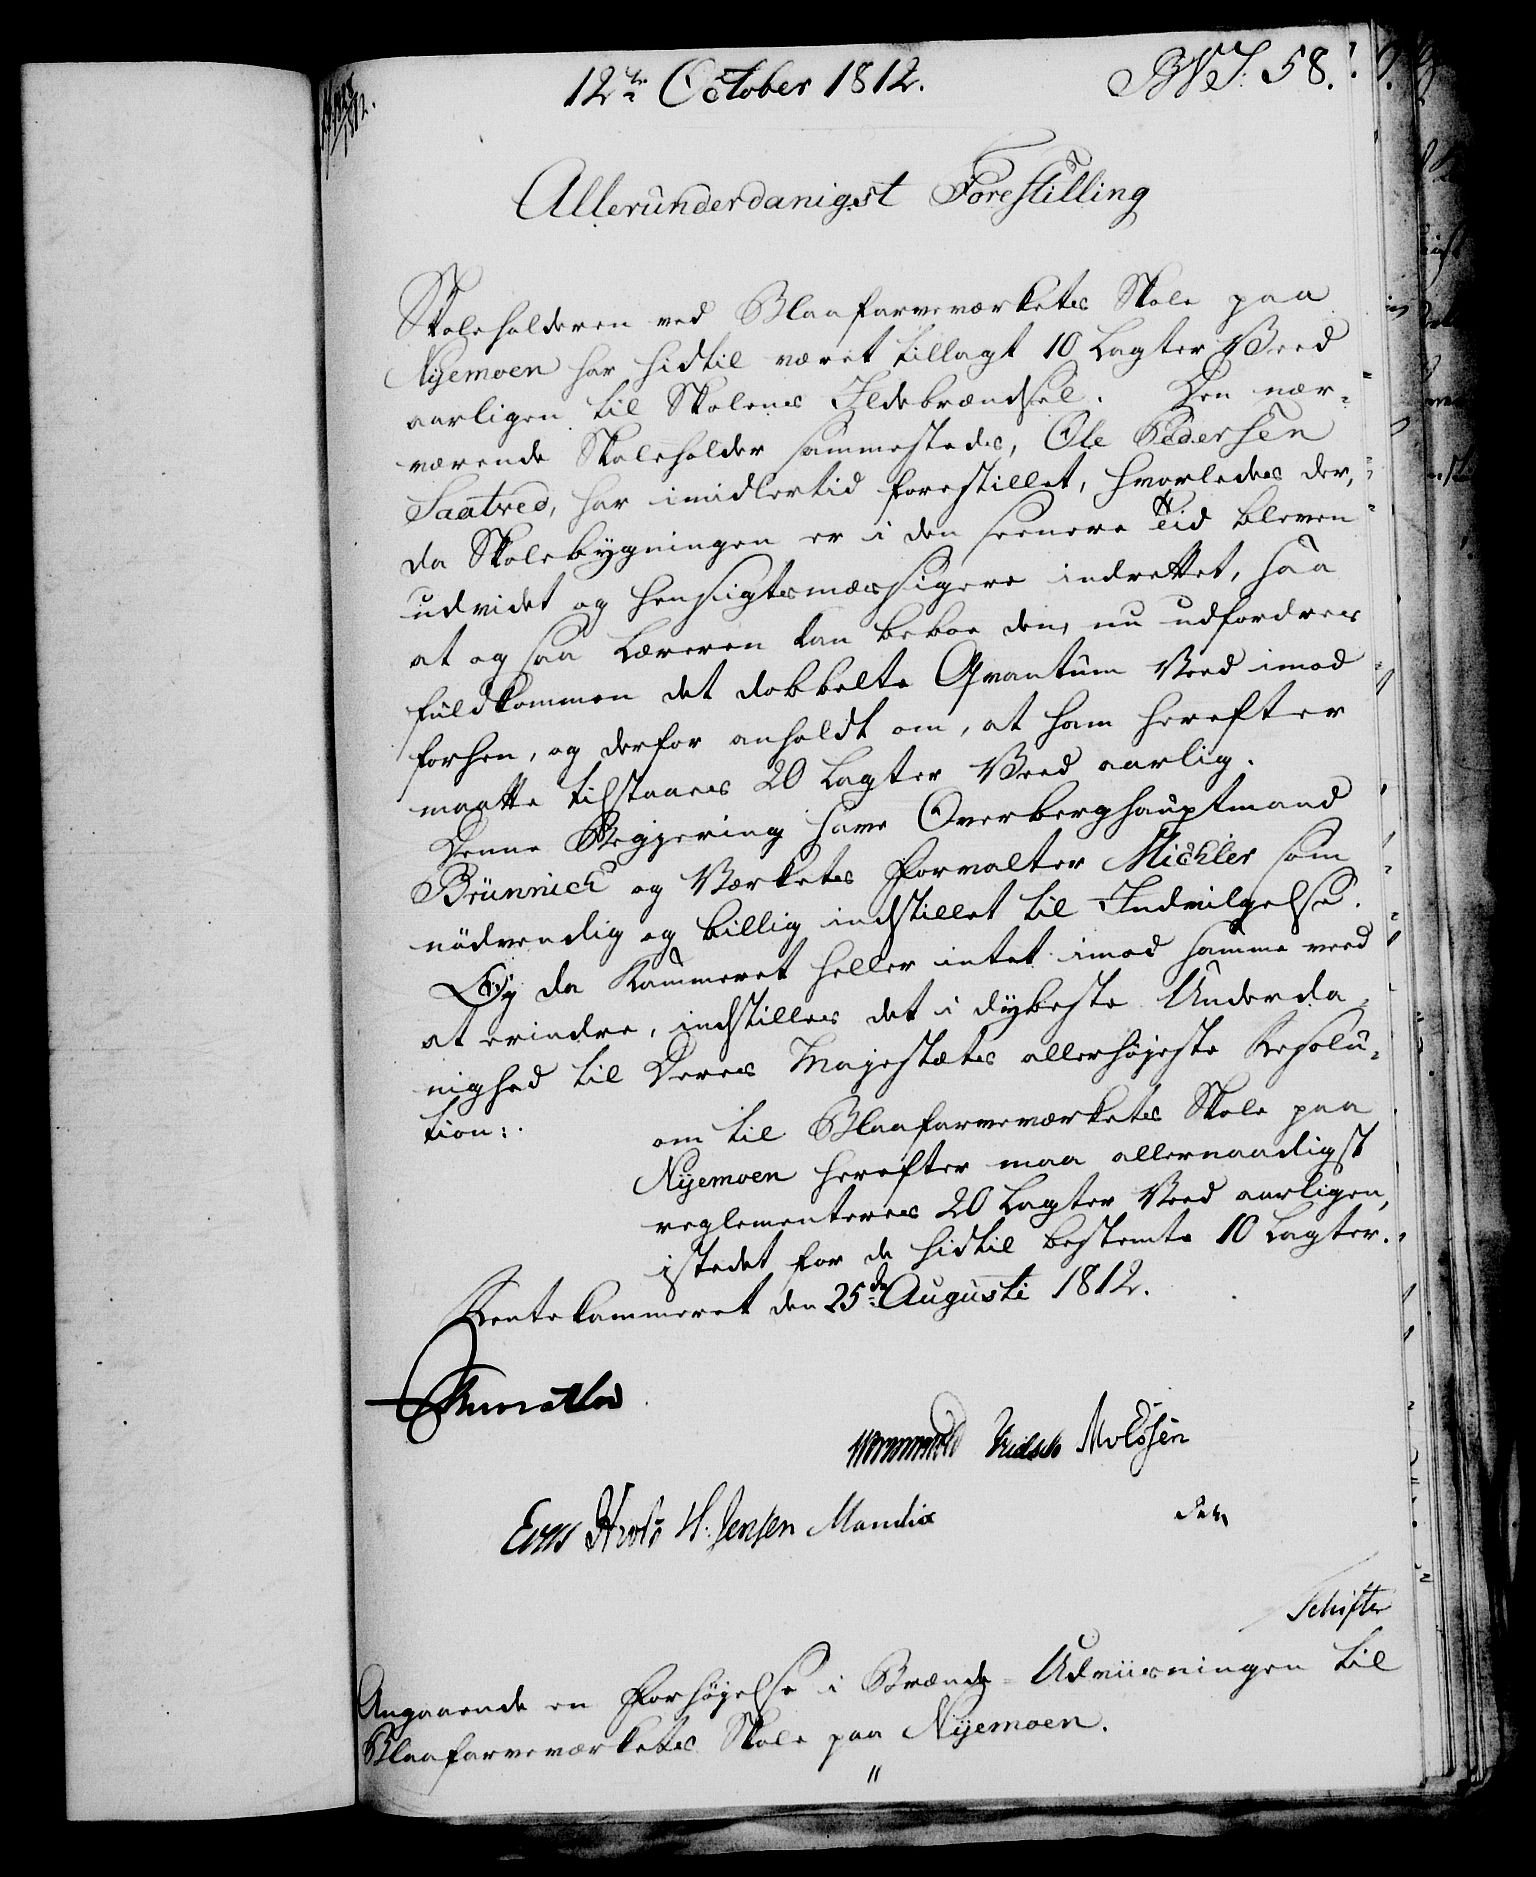 12te October 1812.
BVS. 58.
Allerunderdanigst Forestilling
Skoleholderen ved Blaafarveværkets Skole paa
Nyemoen har hidtil været tillagt 10 Lagter Veed
aarligen til Skolens Ildebrændsel. Den nær-
værende Skoleholder sammesteds, Ole Pedersen
Saatved, har imidlertid forestillet, hvorledes der,
da Skolebygningen er i den seenere Tid bleven
udvidet og hensigtsmæssigere indrettet, saa
at ogsaa Læreren kan beboe den, nu udfordres
fuldkommen det dobbelte Qvantum Veed imod
forhen, og derfor anholdt om, at ham herefter
maatte tilstaaes 20 Lagter Veed aarlig.
Denne Begjering have Overberghauptmand
Brünnich og Værkets Forvalter Michler som
nödvendig og billig indstillet til Indvilgelse.
Og da Kammeret heller intet imod samme veed
at erindre, indstilles det i dybeste Underda-
nighed til Deres Majestæts allerhøjeste Resolu-
tion:
om til Blaafarveværkets Skole paa
Nyemoen herefter maa allernaadigst
reglementeres 20 Lagter Veed aarligen,
istedet for de hidtil bestemte 10 Lagter.
Rentekammeret den 25de Augusti 1812.
Wormskiold Knudsen
H: Jensen Mandix
Schifter
Angaaende en Forhøjelse i Brænde-Udviisningen til
Blaafarveværkets Skole paa Nyemoen.
"